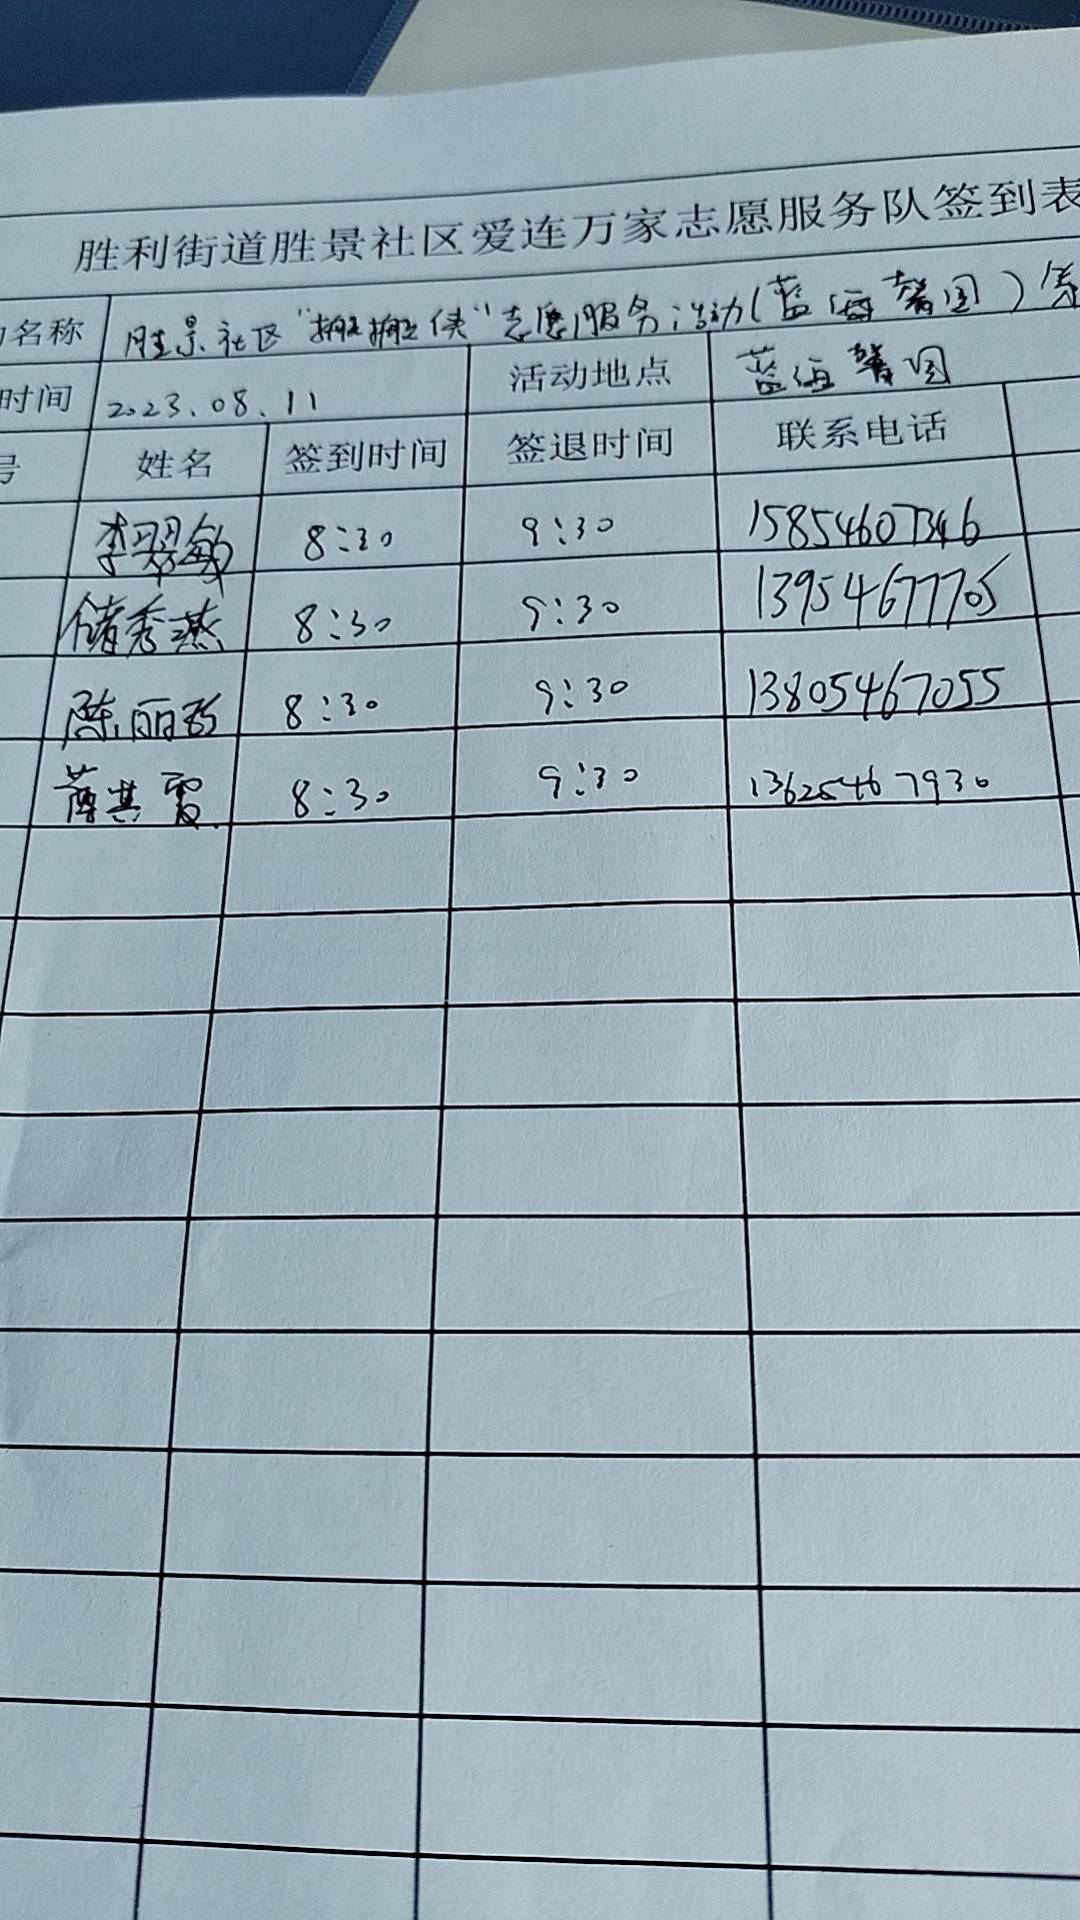 胜利街道胜景社区爱连万家志愿服务队签到表
名称 胜景社区“搬搬侠”志愿服务活动(蓝海馨园)
时间 2023.08.11 活动地点 蓝海馨园
号 姓名 签到时间 签退时间 联系电话
李翠敏 8:30 9:30 15854607346
储秀燕 8:30 9:30 13954677705
陈丽 8:30 9:30 13805467055
薛其霞 8:30 9:30 13625467930